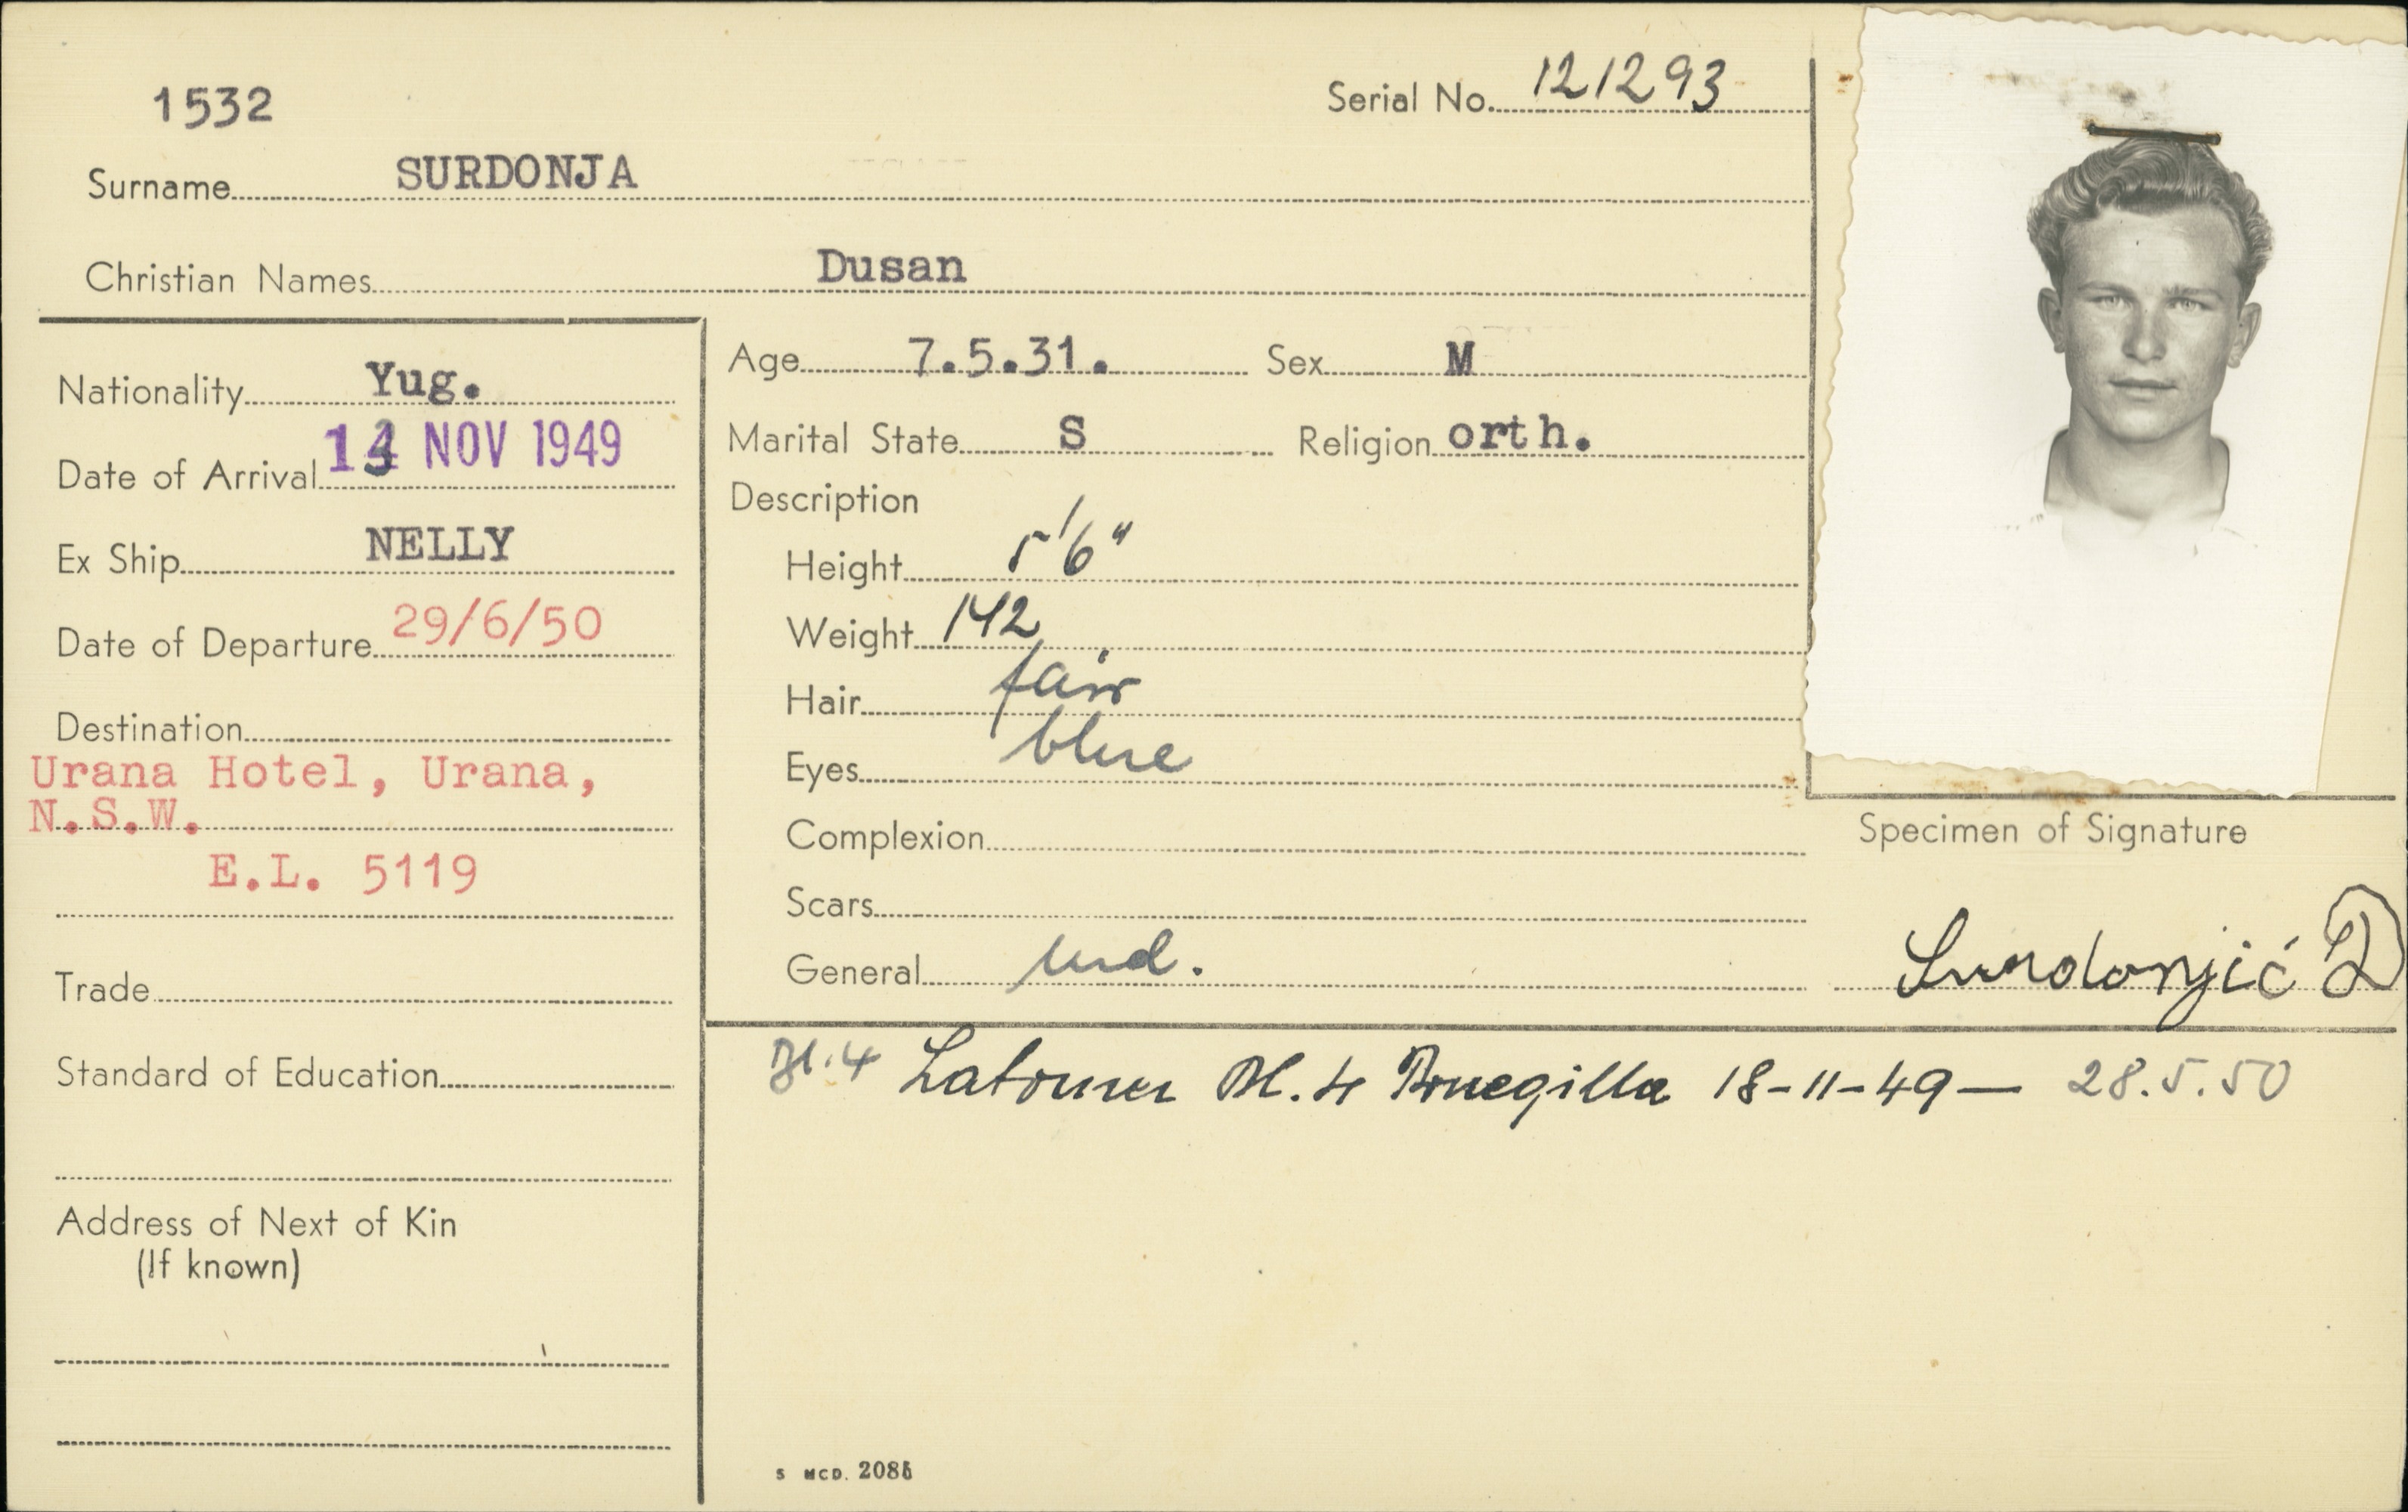 1532
Serial No. 121293
Surname SURDONJA
Christian Names Dusan
Nationality Yug.
Date of Arrival 13 NOV 1949
Ex Ship NELLY
Date of Departure 29/6/50
Destination
Urana Hotel, Urana,
N.S.W.
E.L. 5119
Trade
Standard of Education
Address of Next of Kin
(If known)
Age 7.5.31. Sex M
Marital State S Religion orth.
Description
Height 5'6"
Weight 142
Hair fair
Eyes blue
Complexion
Scars
General
Specimen of Signature
Surdonjić D
Bl.4 Labourer Bl. 4 Bonegilla 18-11-49— 28.5.50
S MCD. 2086